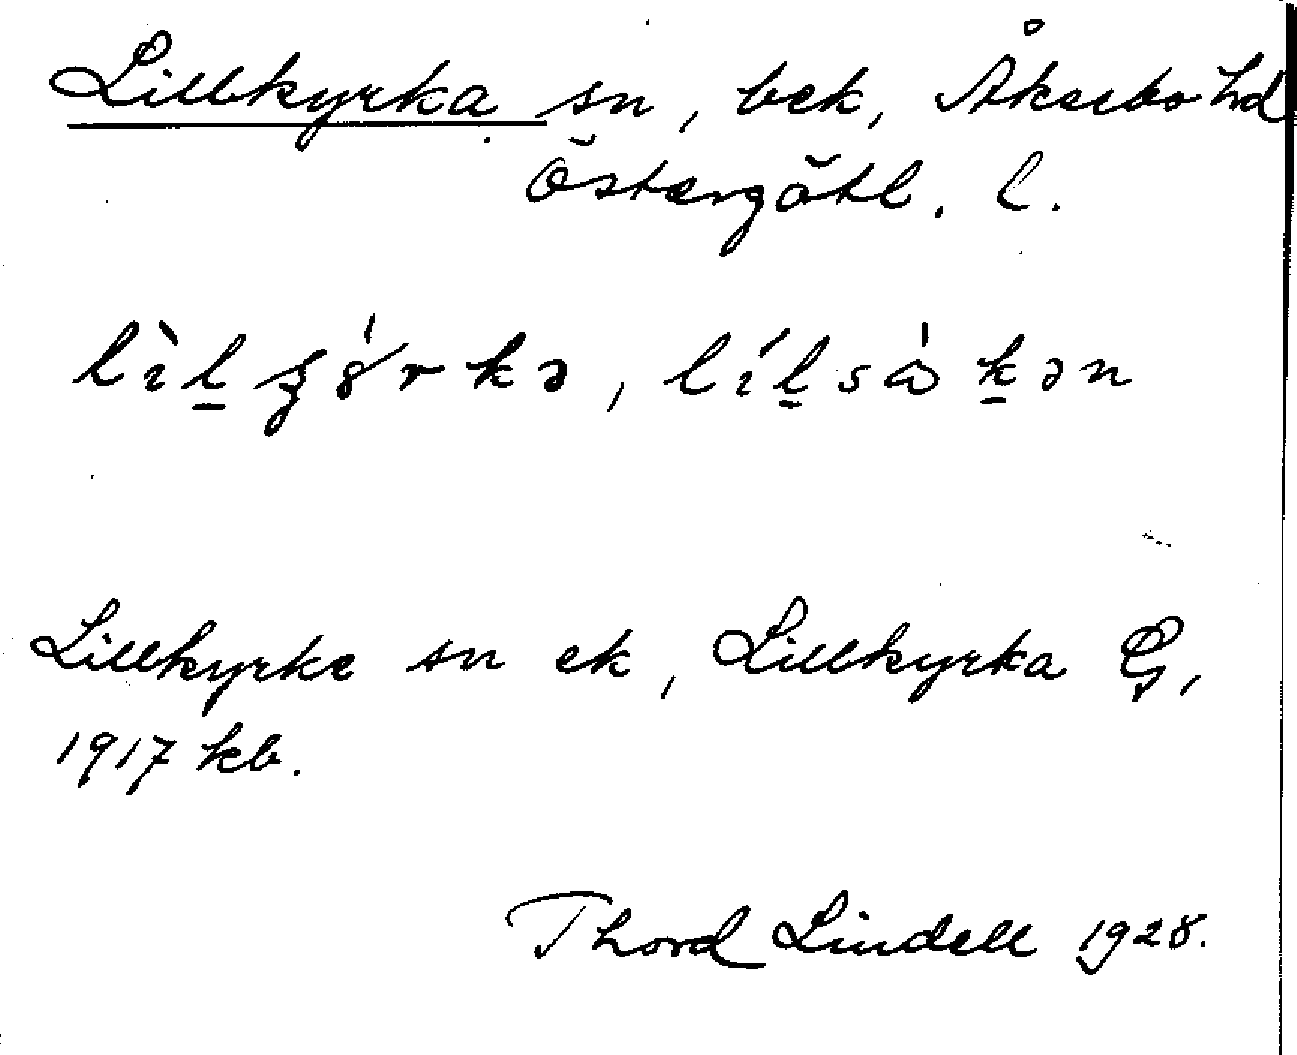 Lillkyrka sn, bek, Åkerbo hd
Östergötl. l.
lìl̠ʂö́rkə, líl̠sàk̠ən
Lillkyrke sn ek, Lillkyrka G,
1917 kb.
Thord Lindell 1928.